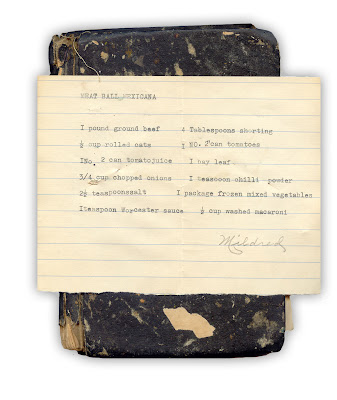 MEAT BALL MEXICANA
I pound ground beef 4 Tablespoons shorting
½ cup rolled oats ½ NO. 2 can tomatoes
INo. 2 can tomatojuice I bay leaf
3/4 cup chopped onions I teaspoon chilli powder
2½ teaspoonssalt I package frozen mixed vegetables
Iteaspoon Worcester sauce ½ cup washed macaroni
Mildred